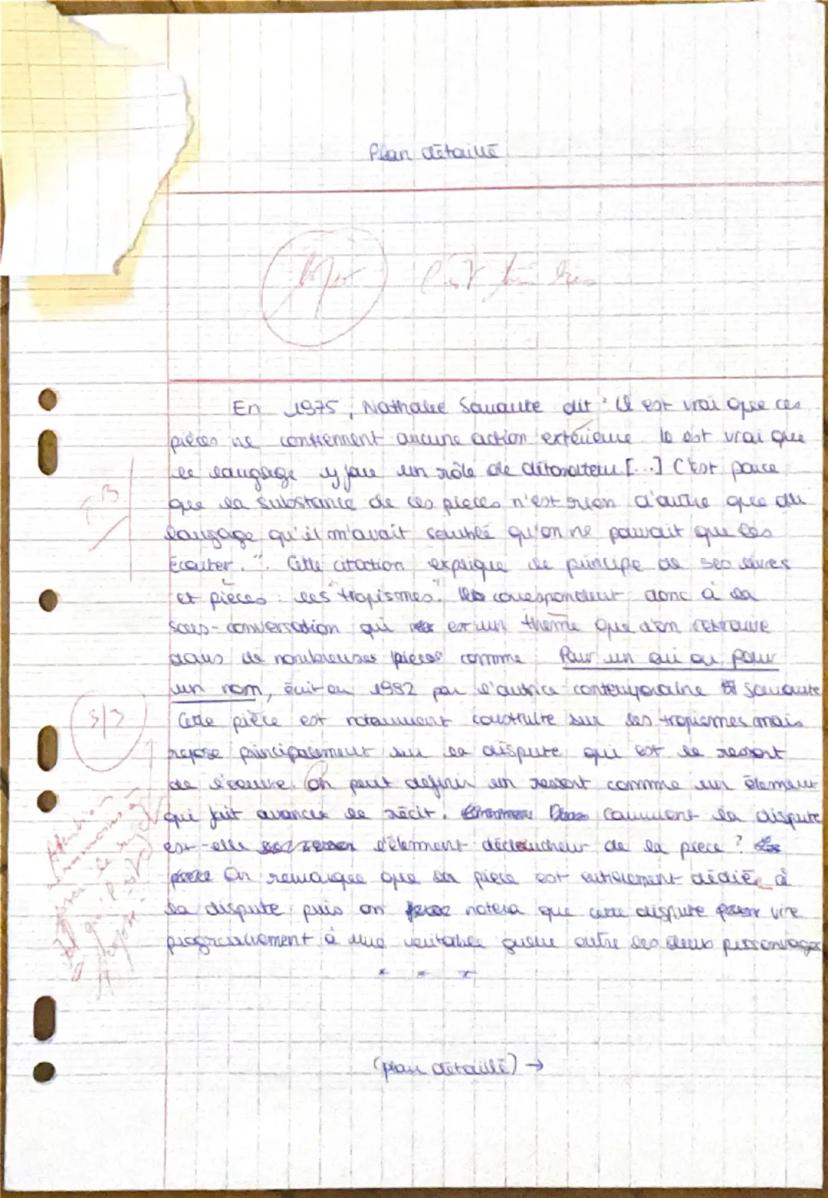 Plan détaillé
C'est très bien
En 1975, Nathalie Sarraute dit "Il est vrai que ces
pièces ne contiennent aucune action extérieure. Il est vrai que
le langage y joue un rôle de détonateur [...] C'est parce
que la substance de ces pièces n'est rien d'autre que du
langage qu'il m'avait semblé qu'on ne pouvait que les
écouter.". Cette citation explique le principe de ses livres
TB
et pièces : les "tropismes". correspondent donc à la
sous-conversation qui est un thème que l'on retrouve
dans de nombreuses pièces comme Pour un oui ou pour
un nom, écrit en 1982 par l'autrice contemporaine Sarraute
Cette pièce est notamment construite sur les tropismes mais
3/3
repose principalement sur la dispute qui est le ressort
de l'œuvre. On peut définir un ressort comme un élément
qui fait avancer le récit. Comment la dispute
est-elle l'élément déclencheur de la pièce ?
On remarquee que la pièce est entièrement dédiée à
la dispute puis on notera que cette dispute vire
progressivement à une véritable guerre entre les deux personnages
* * *
(plan détaillé) →